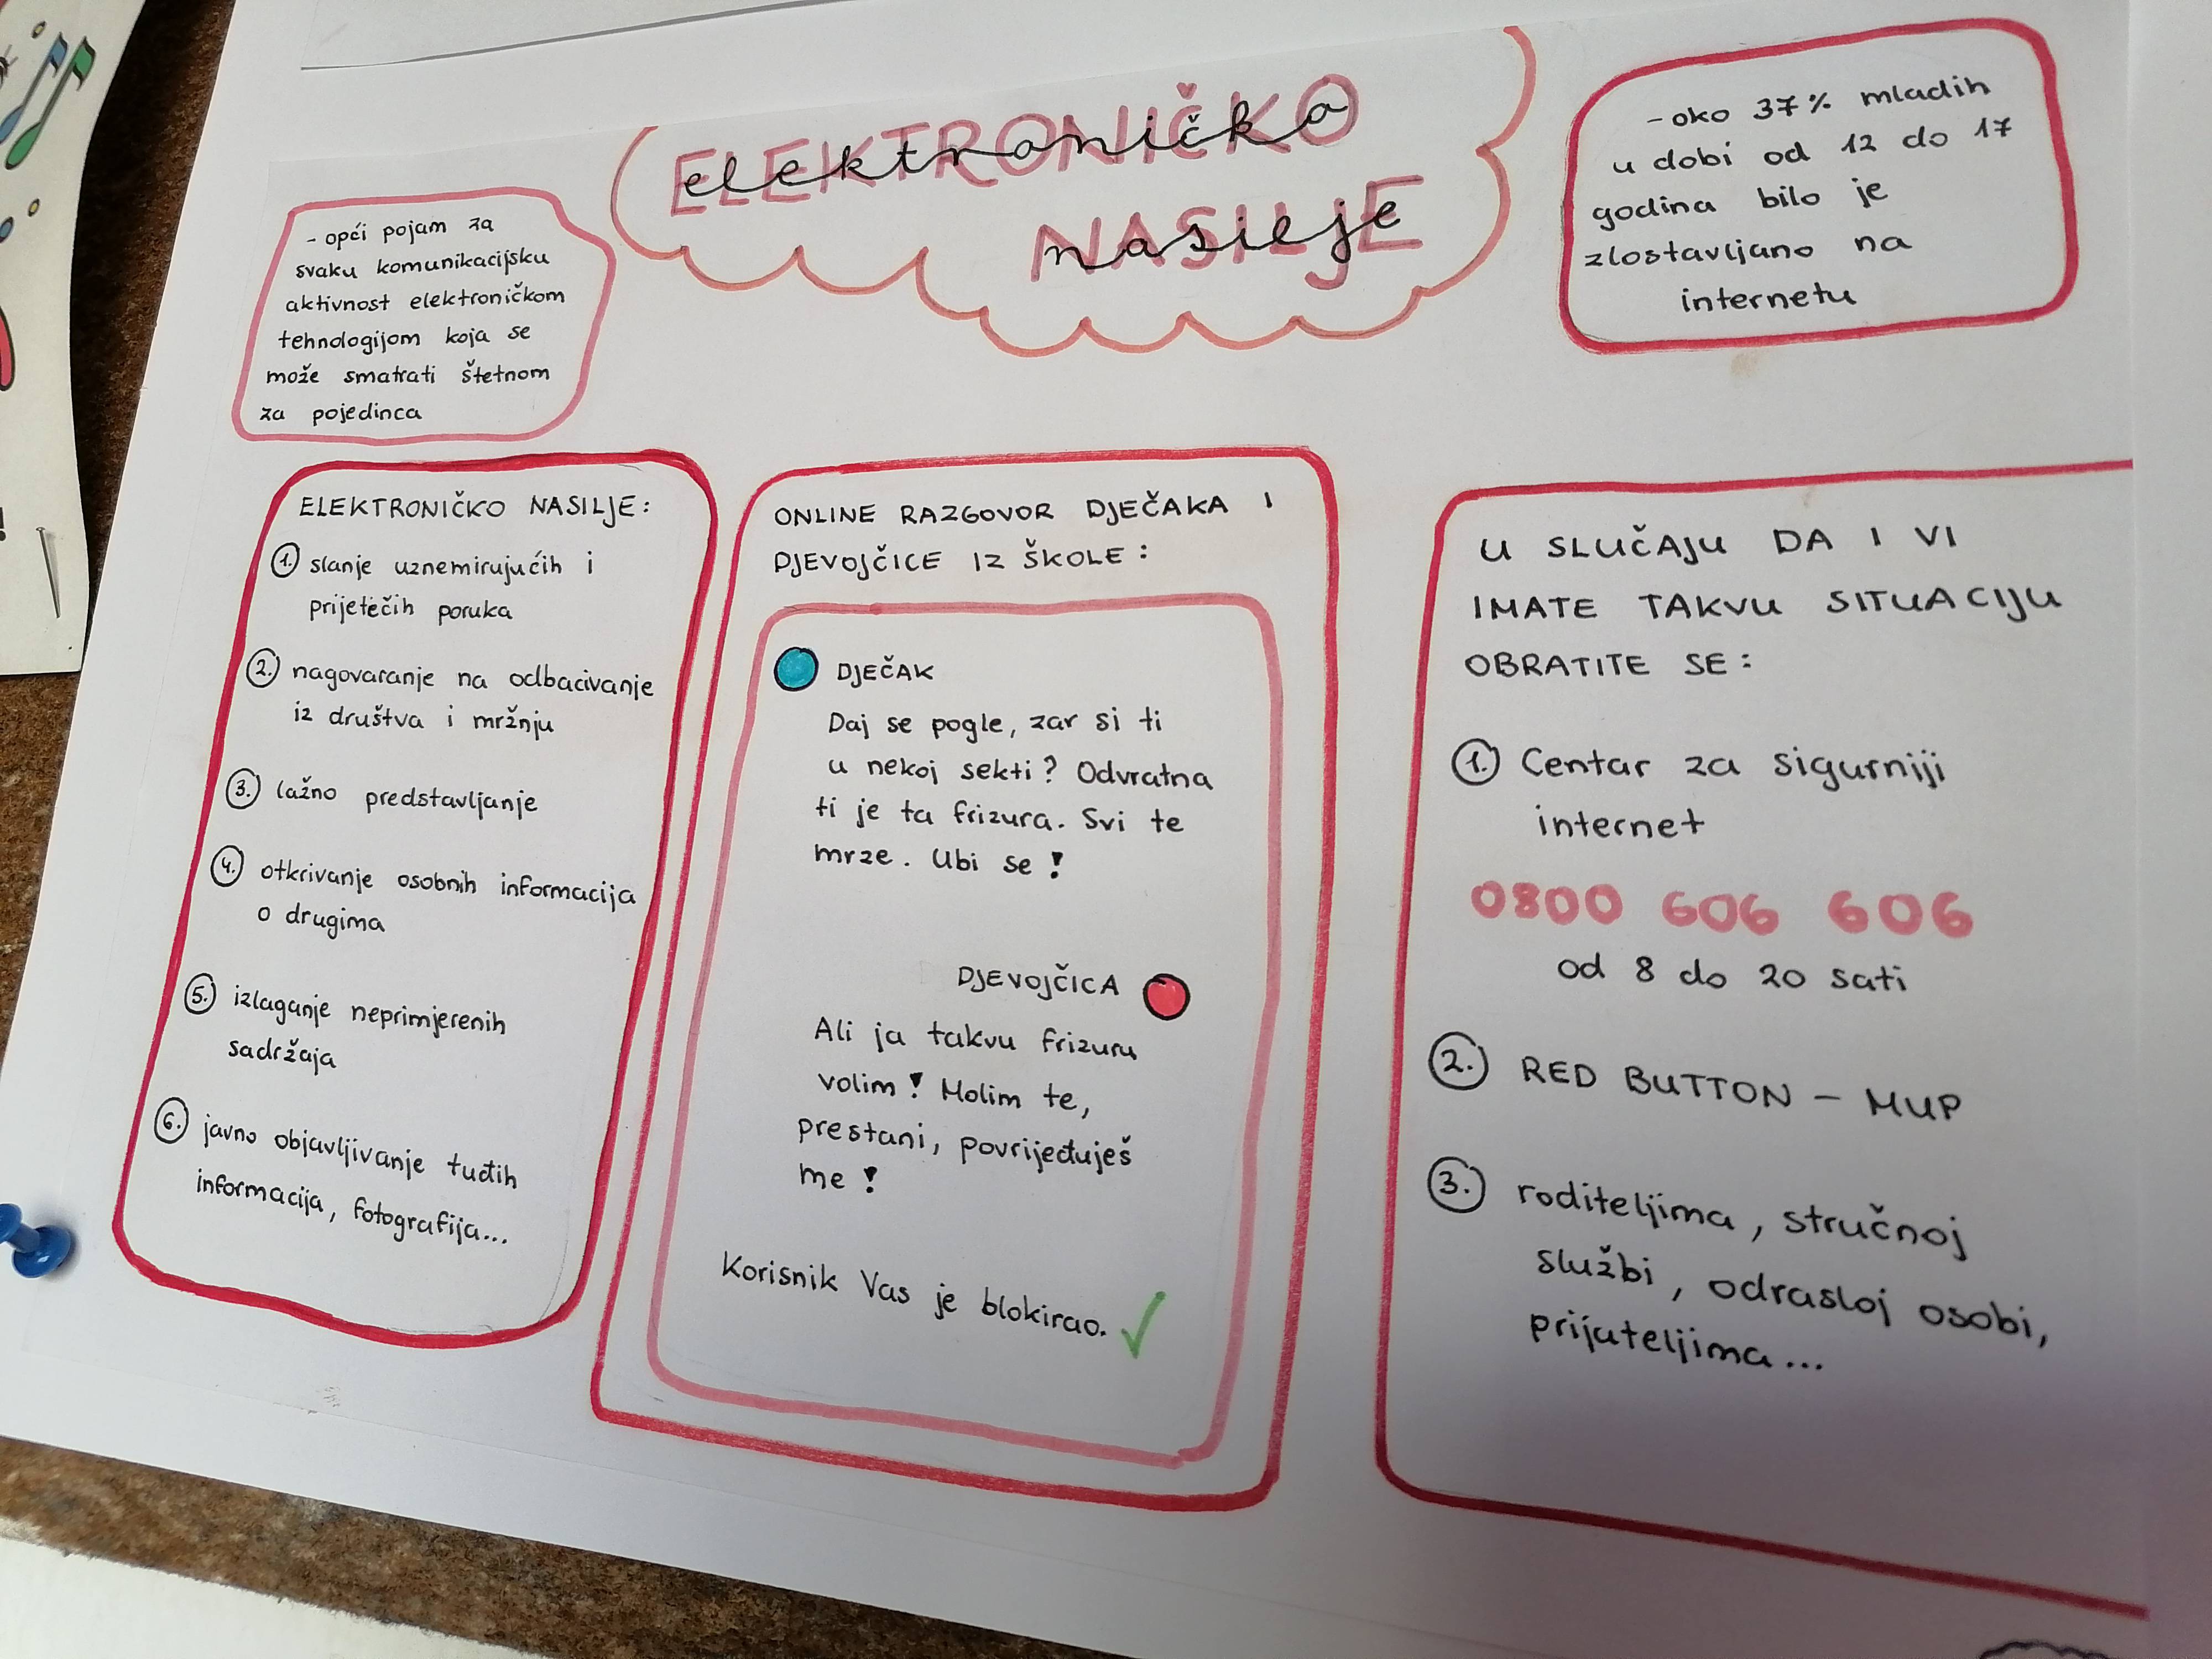 ELEKTRONIČKO
elektroničko
NASILJE
nasilje
- opći pojam za
svaku komunikacijsku
aktivnost elektroničkom
tehnologijom koja se
može smatrati štetnom
za pojedinca
- oko 37% mladih
u dobi od 12 do 17
godina bilo je
zlostavljano na
internetu
ELEKTRONIČKO NASILJE:
1. slanje uznemirujućih i
prijetećih poruka
2. nagovaranje na odbacivanje
iz društva i mržnju
3. lažno predstavljanje
4. otkrivanje osobnih informacija
o drugima
5. izlaganje neprimjerenih
sadržaja
6. javno objavljivanje tuđih
informacija, fotografija...
ONLINE RAZGOVOR DJEČAKA I
DJEVOJČICE IZ ŠKOLE:
DJEČAK
Daj se pogle, zar si ti
u nekoj sekti? Odvratna
ti je ta frizura. Svi te
mrze. Ubi se!
DJEVOJČICA
Ali ja takvu frizuru
volim! Molim te,
prestani, povrijeđuješ
me!
Korisnik Vas je blokirao.
U SLUČAJU DA I VI
IMATE TAKVU SITUACIJU
OBRATITE SE:
1. Centar za sigurniji
internet
0800 606 606
od 8 do 20 sati
2. RED BUTTON - MUP
3. roditeljima, stručnoj
službi, odrasloj osobi,
prijateljima...